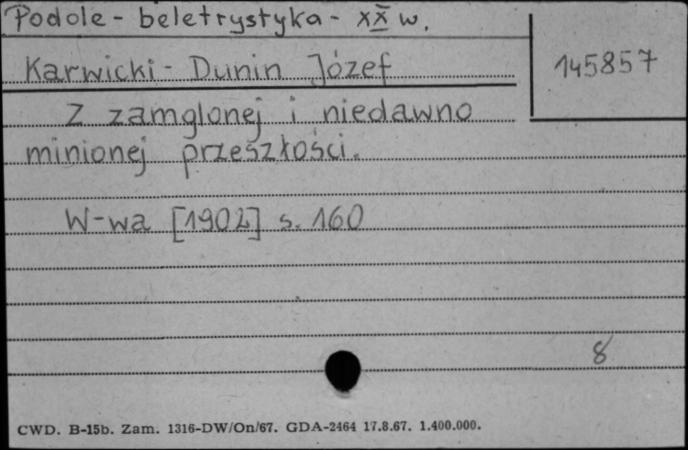 Podole - beletrystyka - XX w.
Karwicki - Dunin Józef
145857
Z zamglonej i niedawno
minionej przeszłości.
W-wa [1902] s. 160
8
CWD. B-15b. Zam. 1316-DW/On/67. GDA-2464 17.8.67. 1.400.000.